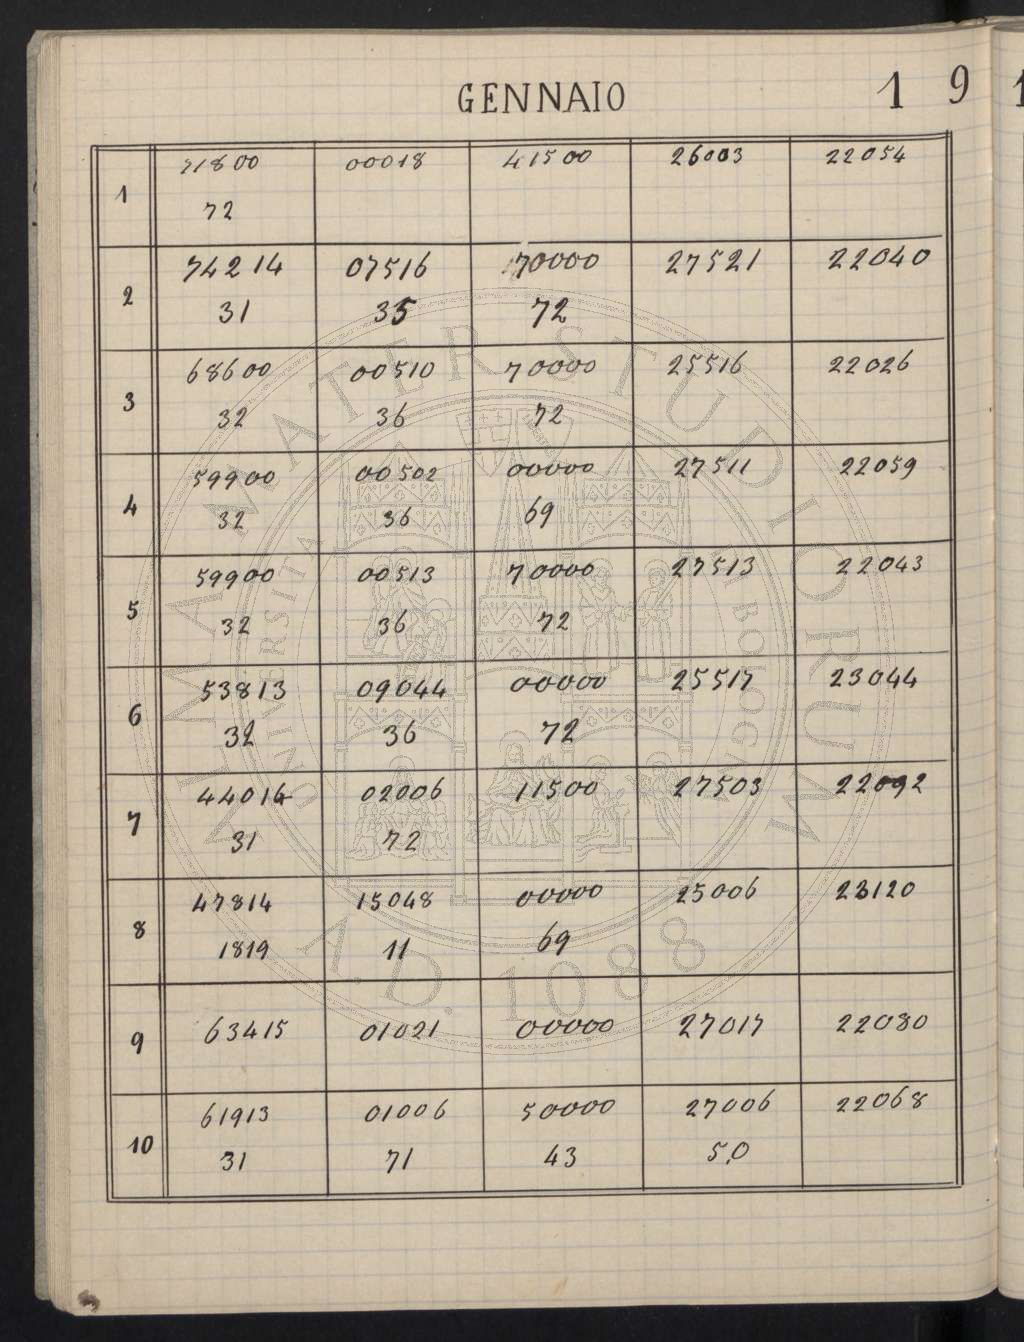 GENNAIO 1 9
1 71800 00018 41500 26003 22054
72
2 74214 07516 70000 27521 22040
31 35 72
3 68600 00510 70000 25516 22026
32 36 72
4 59900 00502 00000 27511 22059
32 36 69
5 59900 00513 70000 27513 22043
32 36 72
6 53813 09044 00000 25517 23044
32 36 72
7 44014 02006 11500 27503 22092
31 72
8 47814 15048 00000 25006 23120
1819 11 69
9 63415 01021 00000 27017 22080
10 61913 01006 50000 27006 22068
31 71 43 5,0
ALMA MATER STUDIORUM
UNIVERSITA BOLOGNA
A.D. 1088